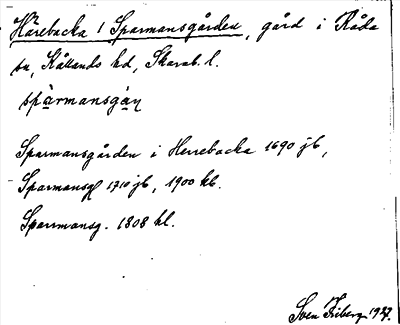 Härebacka 1 Sparmansgården, gård i Råda
sn, Kållands hd, Skarab. l.
spàrmansgàṇ
Sparmansgården i Herrebacka 1690 jb,
Sparmansg 1710 jb, 1900 kb.
Sparrmansg. 1808 hl.
Sven Friberg 1927.